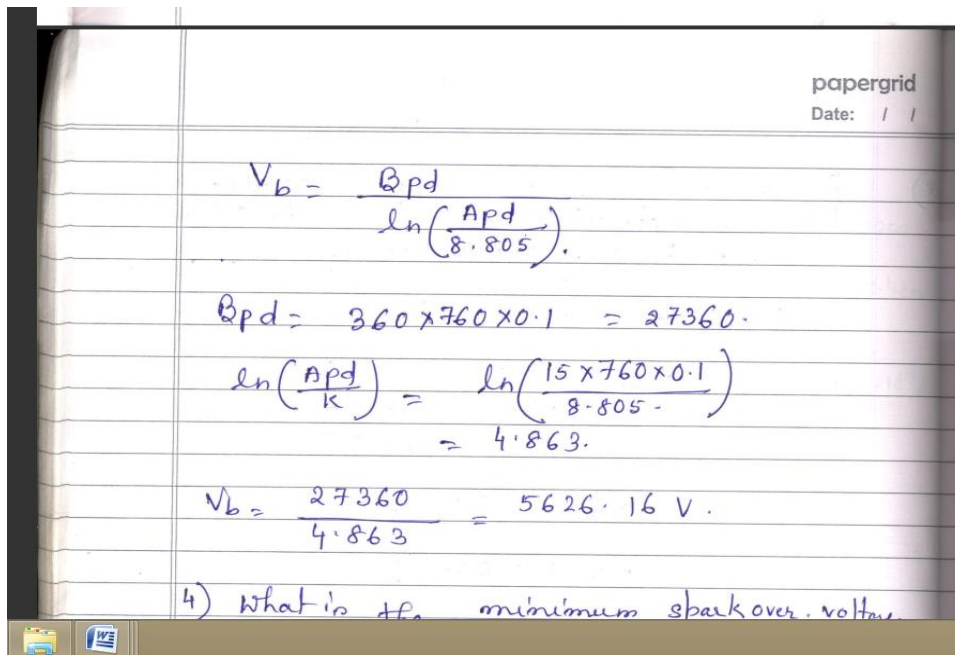 papergrid
Date: / /
Vb = Bpd / ln(Apd / 8.805).
Bpd = 360 x 760 x 0.1 = 27360.
ln(Apd / K) = ln(15 x 760 x 0.1 / 8.805)
= 4.863.
Vb = 27360 / 4.863 = 5626.16 V.
4) What is the minimum spark over voltage